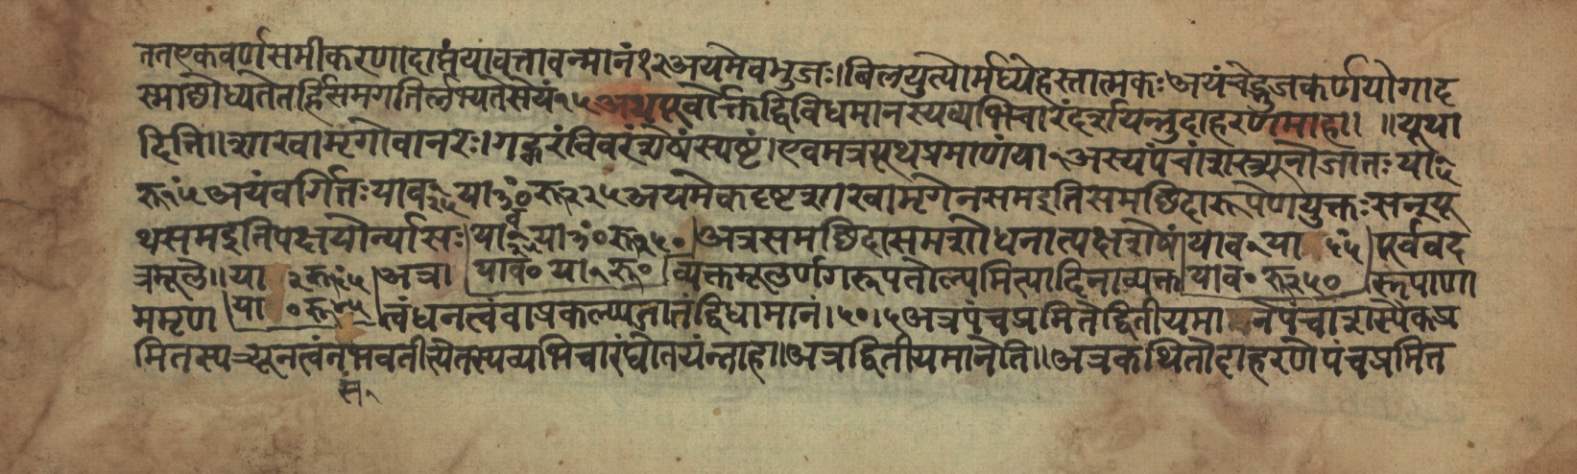 ततएकवर्णसमीकरणादाप्तंयावत्तावन्मानं१२अयमेवभुजः।बिलयुत्योर्मध्येहस्तात्मकः अयंचेद्भुजकर्णयोगाद
स्माछोध्यतेतर्हिसमगतिर्लभ्यतेसेयं१५अथपूर्वोक्तद्विविधमानस्यव्यभिचारंदर्शयन्नुदाहरणमाह॥ ॥यूथा
दिति॥शाखामृगोवानरः।गह्वरंविवरंशेषंस्पष्टं।एवमत्रयूथप्रमाणंया१अस्यपंचांशस्त्र्यूनोजातः या
रू अयंवर्गितः याव या रू२२५अयमेकदृष्टशाखामृगेनसमइतिसमछिदारूपेणयुक्तःसन्यू
थसमइतिपक्षयोर्न्यासः याव या रू२५० अत्रसमछिदासमशोधनात्पक्षशेषं याव१या ५५ पूर्ववद
त्रमूले॥या २रू अत्र। याव०या१रू० व्यक्तमूलर्णगरूपतोल्पमित्यादिनाव्यक्त याव०रू२५० स्तृपाणा
ममृण या ०रू त्वंधनत्वंवाप्रकल्प्यतातंद्विधामानं।५०।५अत्रपंचप्रमितेद्वितीयमा नेपंचांशस्यैकप्र
मितस्यत्र्यूनत्वंनभवतीत्येतस्यव्यभिचारंघोतयंन्नाह॥अत्रद्वितीयमानेति॥अत्रकथितोदाहरणेपंचप्रमित